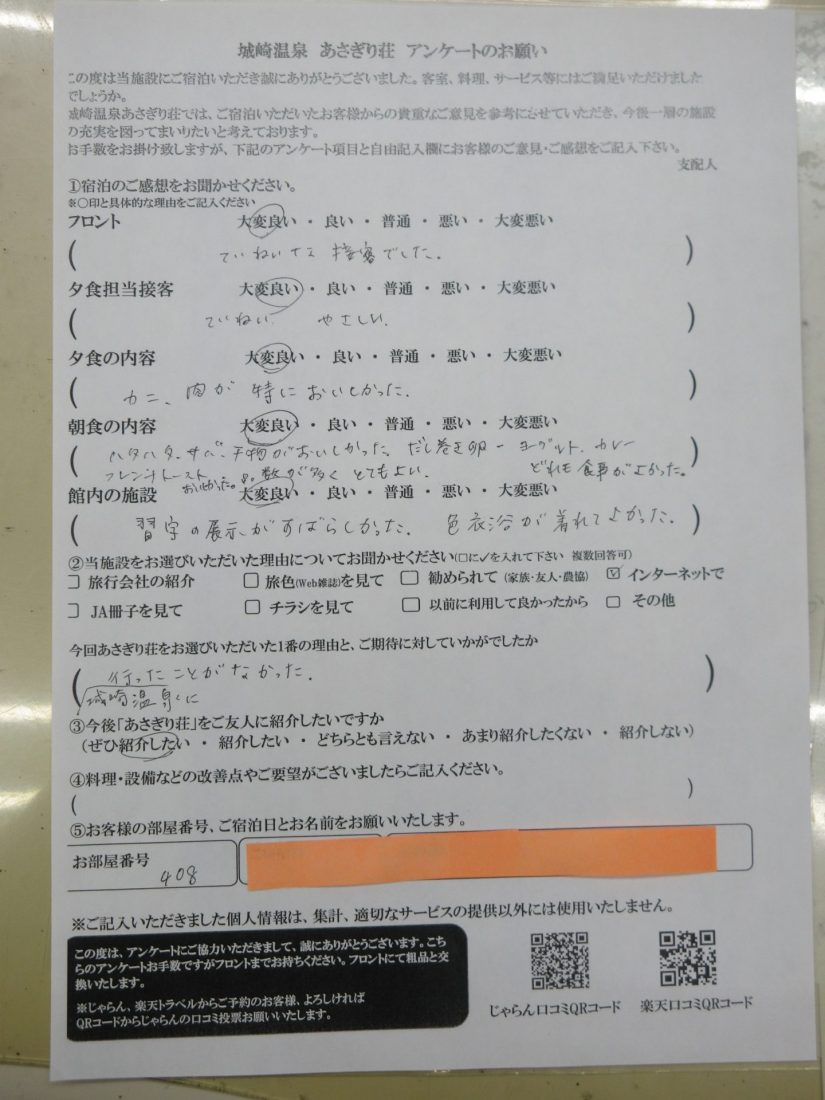 城崎温泉 あさぎり荘 アンケートのお願い
この度は当施設にご宿泊いただき誠にありがとうございました。客室、料理、サービス等にはご満足いただけました
でしょうか。
城崎温泉あさぎり荘では、ご宿泊いただいたお客様からの貴重なご意見を参考にさせていただき、今後一層の施設
の充実を図ってまいりたいと考えております。
お手数をお掛け致しますが、下記のアンケート項目と自由記入欄にお客様のご意見・ご感想をご記入下さい。
支配人
①宿泊のご感想をお聞かせください。
※○印と具体的な理由をご記入ください
フロント 大変良い ・ 良い ・ 普通 ・ 悪い ・ 大変悪い
( ていねいな 接客でした。 )
夕食担当接客 大変良い ・ 良い ・ 普通 ・ 悪い ・ 大変悪い
( ていねい やさしい. )
夕食の内容 大変良い ・ 良い ・ 普通 ・ 悪い ・ 大変悪い
( カニ、肉が 特においしかった. )
朝食の内容 大変良い ・ 良い ・ 普通 ・ 悪い ・ 大変悪い
( ハタハタ.サバ.干物がおいしかった. だし巻き卵 ヨーグルト. カレー
フレンチトースト おいしかった。 数が多く とてもよい. どれも 食事がよかった。 )
館内の施設 大変良い ・ 良い ・ 普通 ・ 悪い ・ 大変悪い
( 習字の展示がすばらしかった. 色衣浴が着れてよかった. )
②当施設をお選びいただいた理由についてお聞かせください(□に✓を入れて下さい 複数回答可)
□ 旅行会社の紹介 □ 旅色(Web雑誌)を見て □ 勧められて (家族・友人・農協) ☑ インターネットで
□ JA冊子を見て □ チラシを見て □ 以前に利用して良かったから □ その他
今回あさぎり荘をお選びいただいた1番の理由と、ご期待に対していかがでしたか
( 行ったことがなかった.
城崎温泉に )
③今後「あさぎり荘」をご友人に紹介したいですか
(ぜひ紹介したい ・ 紹介したい ・ どちらとも言えない ・ あまり紹介したくない ・ 紹介しない)
④料理・設備などの改善点やご要望がございましたらご記入ください。
( )
⑤お客様の部屋番号、ご宿泊日とお名前をお願いいたします。
お部屋番号
408
※ご記入いただきました個人情報は、集計、適切なサービスの提供以外には使用いたしません。
この度は、アンケートにご協力いただきまして、誠にありがとうございます。こち
らのアンケートお手数ですがフロントまでお持ちください。フロントにて粗品と交
換いたします。
※じゃらん、楽天トラベルからご予約のお客様、よろしければ
QRコードからじゃらんの口コミ投票お願いいたします。
じゃらん口コミQRコード 楽天口コミQRコード